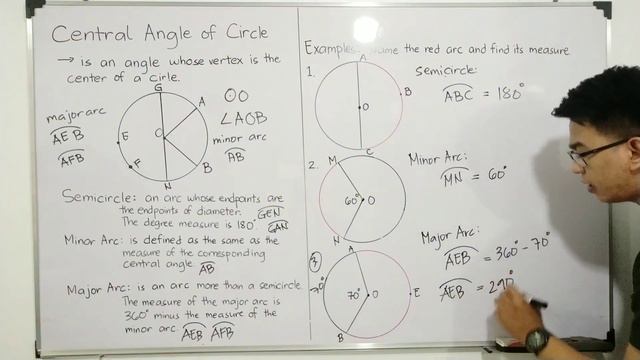 Central Angle of Circle
→ is an angle whose vertex is the
center of a cirle.
major arc
AEB
AFB
G
A
E
O
F
B
N
⊙O
∠AOB
minor arc
AB
Semicircle: an arc whose endpoints are
the endpoints of diameter. GEN
The degree measure is 180° GAN
Minor Arc: is defined as the same as the
measure of the corresponding
central angle. AB
Major Arc: is an arc more than a semicircle
The measure of the major arc is
360° minus the measure of the
minor arc. AEB AFB
Examples: Name the red arc and find its measure
1.
A
B
O
C
Semicircle:
ABC = 180°
2.
M
60°
O
N
Minor Arc:
MN = 60°
3
A
70°
70°
O
E
B
Major Arc:
AEB = 360° - 70°
AEB = 290°